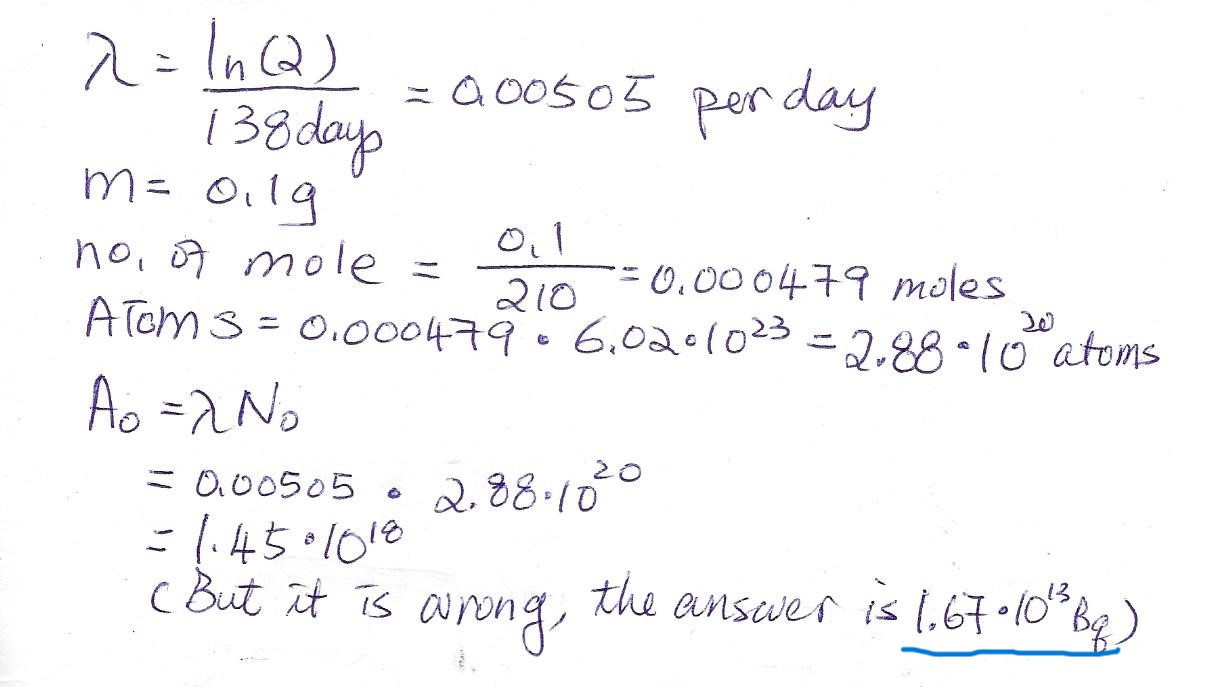 λ = ln(2) / 138days = 0.00505 per day
m = 0.1g
no. of mole = 0.1 / 210 = 0.000479 moles
Atoms = 0.000479 • 6.02•10²³ = 2.88•10²⁰ atoms
A₀ = λN₀
= 0.00505 • 2.88•10²⁰
= 1.45•10¹⁸
(But it is wrong, the answer is 1.67•10¹³Bq)